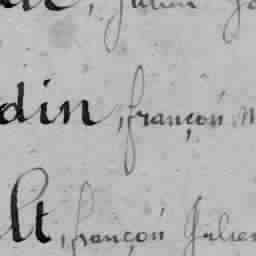 , Julien
din, françois M
lt, françois Julien